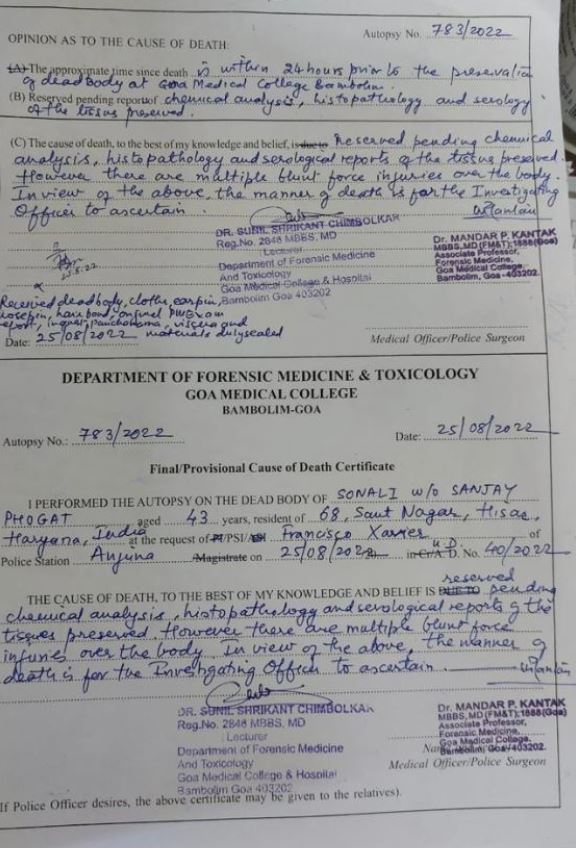 Autopsy No. 783/2022
OPINION AS TO THE CAUSE OF DEATH:
(A) The approximate time since death is within 24 hours prior to the preservation
of deadbody at Goa Medical College Bambolim.
(B) Reserved pending report of chemical analysis, histopathology and serology
of the tissues preserved.
(C) The cause of death, to the best of my knowledge and belief, is due to Reserved pending chemical
analysis, histopathology and serological reports of the tissues preserved.
However there are multiple blunt force injuries over the body.
In view of the above, the manner of death is for the Investigating
Officer to ascertain.
DR. SUNIL SHRIKANT CHIMBOLKAR
Reg.No. 2848 MBBS, MD
Lecturer
Department of Forensic Medicine
And Toxicology
Goa Medical College & Hospital
Bambolim Goa 403202
Dr. MANDAR P. KANTAK
MBBS, MD (FM&T); 1888(Goa)
Associate Professor,
Forensic Medicine,
Goa Medical College,
Bambolim, Goa-403202.
Received deadbody, clothe, earpin,
nosepin, hair band,
report, viscera and
materials duly sealed
Date: 25/08/2022
Medical Officer/Police Surgeon
DEPARTMENT OF FORENSIC MEDICINE & TOXICOLOGY
GOA MEDICAL COLLEGE
BAMBOLIM-GOA
Autopsy No.: 783/2022
Date: 25/08/2022
Final/Provisional Cause of Death Certificate
I PERFORMED THE AUTOPSY ON THE DEAD BODY OF SONALI w/o SANJAY
PHOGAT aged 43 years, resident of 68, Sant Nagar, Hisar,
Haryana, India at the request of PI/PSI/ASI Francisco Xavier of
Police Station Anjuna Magistrate on 25/08/2022 in Cr/A.D. U.D. No. 40/2022
THE CAUSE OF DEATH, TO THE BEST OF MY KNOWLEDGE AND BELIEF IS DUE TO reserved pending
chemical analysis, histopathology and serological reports of the
tissues preserved. However there are multiple blunt force
injuries over the body. In view of the above, the manner of
death is for the Investigating Officer to ascertain.
DR. SUNIL SHRIKANT CHIMBOLKAR
Reg.No. 2848 MBBS, MD
Lecturer
Department of Forensic Medicine
And Toxicology
Goa Medical College & Hospital
Bambolim Goa 403202
Dr. MANDAR P. KANTAK
MBBS, MD (FM&T); 1888(Goa)
Associate Professor,
Forensic Medicine,
Goa Medical College,
Bambolim, Goa-403202.
Medical Officer/Police Surgeon
If Police Officer desires, the above certificate may be given to the relatives).